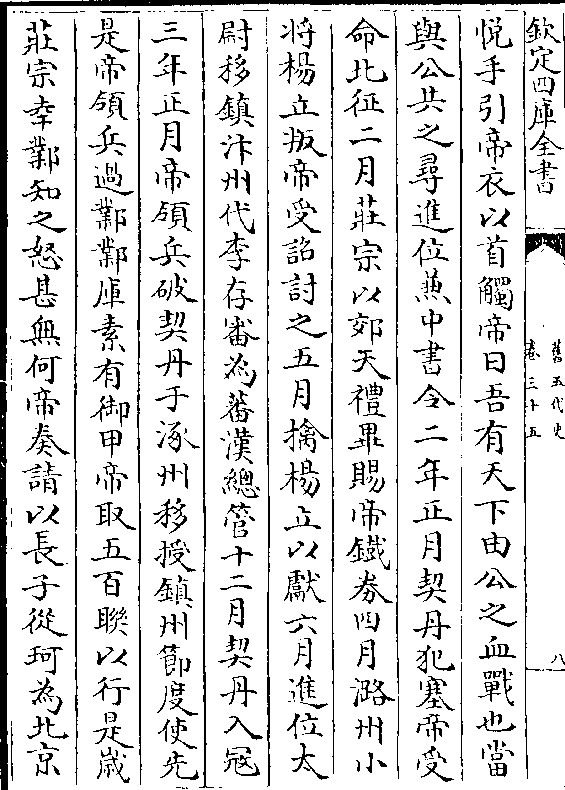 欽定四庫全書
舊五代史
卷三十五
八
悅手引帝衣以首觸帝曰吾有天下由公之血戰也當
與公共之尋進位兼中書令二年正月契丹犯塞帝受
命北征二月莊宗以郊天禮畢賜帝鐵券四月潞州小
将楊立叛帝受詔討之五月擒楊立以獻六月進位太
尉移鎮汴州代李存審為蕃漢總管十二月契丹入冦
三年正月帝領兵破契丹于涿州移授鎮州節度使先
是帝領兵過鄴鄴庫素有御甲帝取五百聯以行是嵗
莊宗幸鄴知之怒甚無何帝奏請以長子從珂為北京